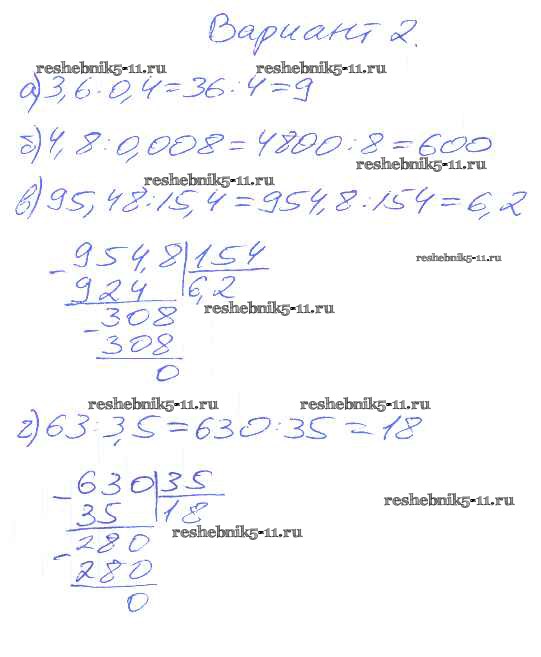 Вариант 2.
reshebnik5-11.ru reshebnik5-11.ru
а) 3,6:0,4=36:4=9
б) 4,8:0,008=4800:8=600
reshebnik5-11.ru
reshebnik5-11.ru
в) 95,48:15,4=954,8:154=6,2
reshebnik5-11.ru
- 954,8 | 154
924 | 6,2
reshebnik5-11.ru
- 308
308
0
reshebnik5-11.ru reshebnik5-11.ru
г) 63:3,5=630:35=18
- 630 | 35
35 | 18
reshebnik5-11.ru
reshebnik5-11.ru
- 280
280
0